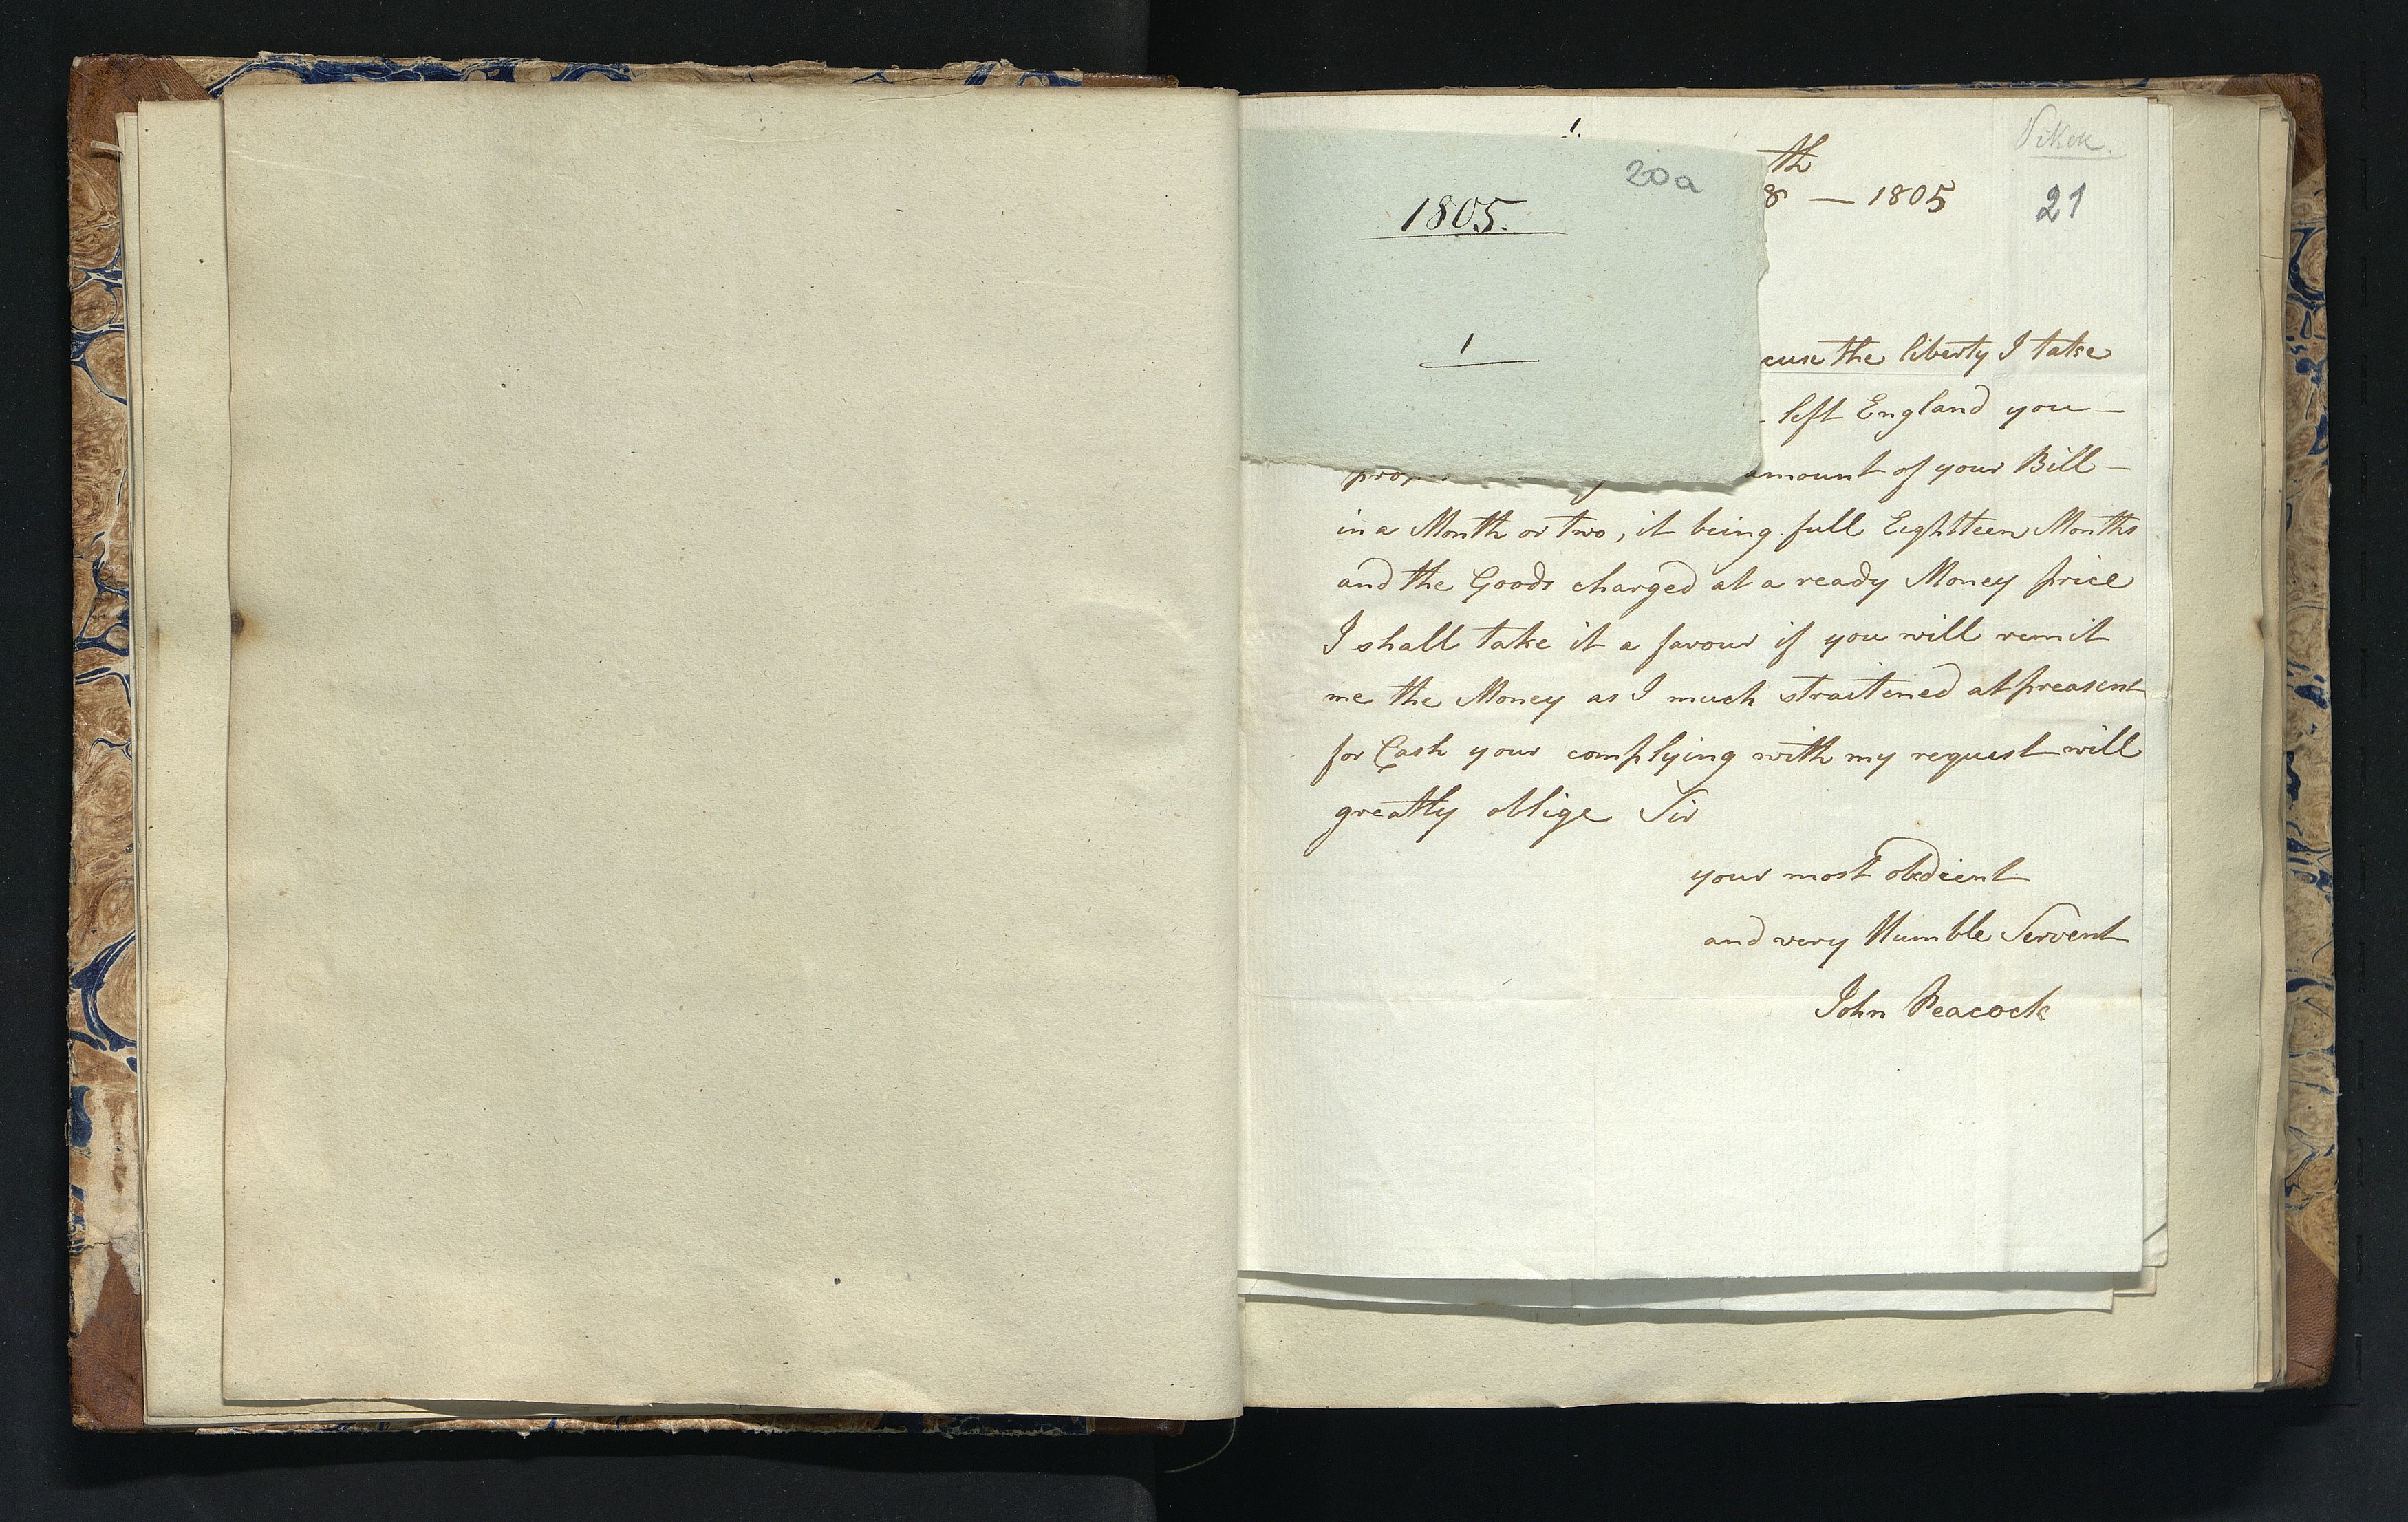 1.
20a
1805.
1
th
8 — 1805
21
cuse the liberty I take
left England you —
amount of your Bill —
in a Month or two, it being full Eightteen Months
and the Goods charged at a ready Money price
I shall take it a favour if you will remit
me the Money as I much straitened at preasent
for Cash your complying with my request will
greatly oblige Sir
your most obedient
and very Humble Servent
John Peacock